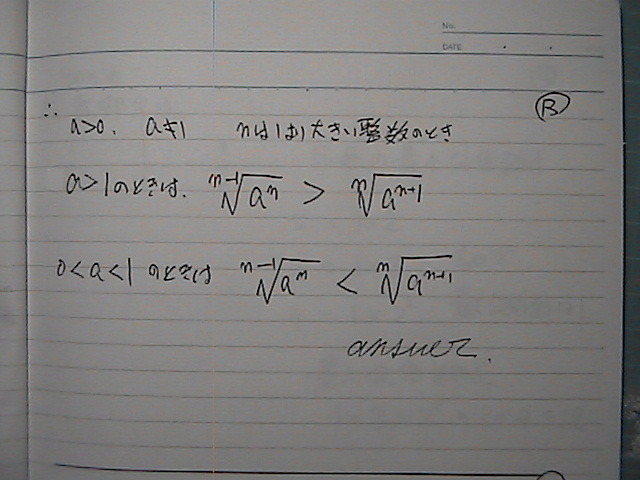 No.
DATE
B
∴ a>0, a≠1 nは1より大きい整数のとき
a>1のときは、 ⁿ⁻¹√aⁿ > ⁿ√aⁿ⁺¹
0<a<1 のときは ⁿ⁻¹√aⁿ < ⁿ√aⁿ⁺¹
answer.